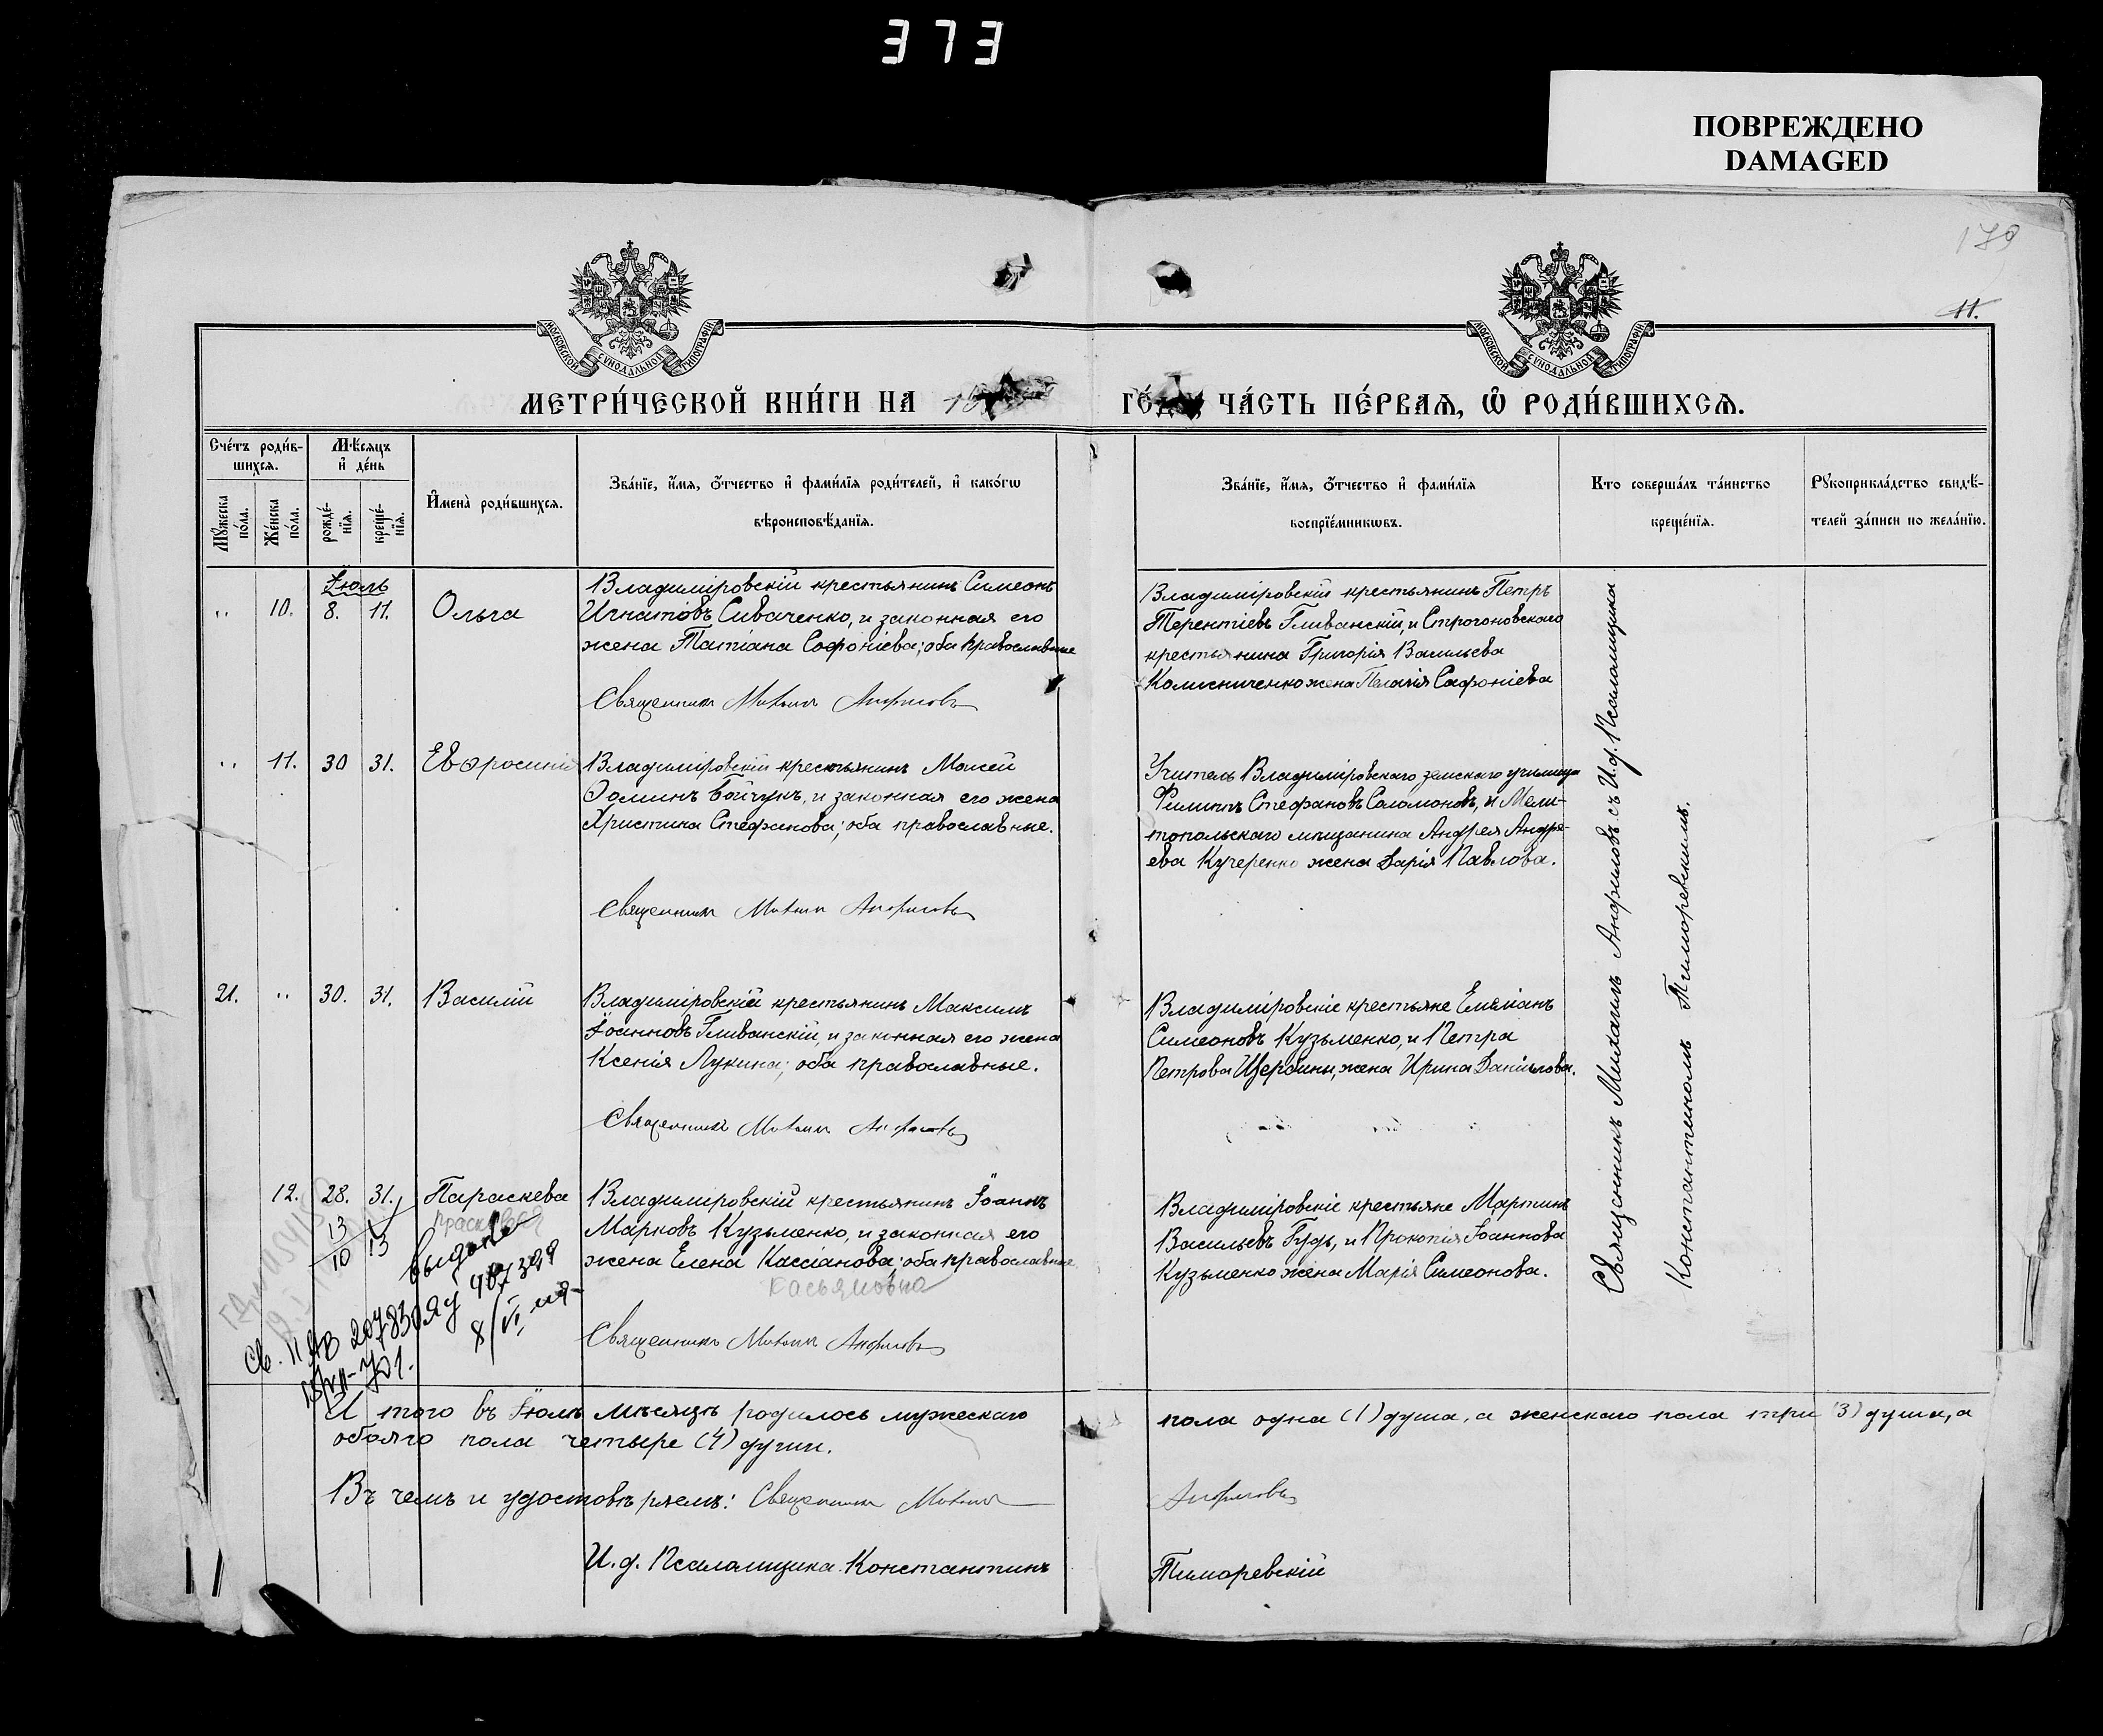 373
ПОВРЕЖДЕНО
DAMAGED
179
11.
МОСКОВСКОЙ СѴНОДАЛЬНОЙ ТИПОГРАФІИ
МОСКОВСКОЙ СѴНОДАЛЬНОЙ ТИПОГРАФІИ
МЕТРИ́ЧЕСКОЙ КНИ́ГИ НА
ЧА́СТЬ ПЕ́РВАѦ, Ѡ РОДИ́ВШИХСѦ.
Сче́тъ роди́в-
шихсѧ.
Мꙋ́жеска
по́ла.
Же́нска
по́ла.
Мѣ́сѧцъ
и҆ де́нь
рожде́-
нїѧ.
креще́-
нїѧ.
И҆мена̀ роди́вшихсѧ.
Зва́нїе, и҆́мѧ, ѻ҆́тчество и҆ фами́лїѧ роди́телей, и҆ како́гѡ
вѣроисповѣ́данїѧ.
Зва́нїе, и҆́мѧ, ѻ҆́тчество и҆ фами́лїѧ
воспрїе́мникѡвъ.
Кто соверша́лъ та́инство
креще́нїѧ.
Рꙋкоприкла́дство свидѣ́-
телей за́писи по жела́нїю.
Іюль
,, 10. 8. 11. Ольга
Владиміровскій крестьянинъ Симеонъ
Игнатовъ Сиваченко, и законная его
жена Татіана Софоніева; оба православные
Священникъ Михаилъ Анфимовъ
Владиміровскій крестьянинъ Петръ
Терентіевъ Гливанскій, и Строгоновскаго
крестьянина Григорія Васильева
Колисниченко жена Пелагія Сафоніева
,, 11. 30 31. Евфросинія
Владиміровскій крестьянинъ Моисей
Ѳоминъ Бойчукъ, и законная его жена
Христина Стефанова; оба православные.
Священникъ Михаилъ Анфимовъ
Учитель Владиміровскаго земскаго училища
Филиппъ Стефановъ Соломоновъ, и Мели-
топольскаго мѣщанина Андрея Андре-
ева Кучеренко жена Дарія Павлова.
21. ,, 30. 31. Василій
Владиміровскій крестьянинъ Максимъ
Іоанновъ Гливанскій, и законная его жена
Ксенія Лукина; оба православные.
Священникъ Михаилъ Анфимовъ
Владиміровскіе крестьяне Емиліанъ
Симеоновъ Кузьменко, и Петра
Петрова Щербины, жена Ирина Даніилова.
12. 28. 31. Параскева
Прасковья
13
10 13
выдано
Владиміровскій крестьянинъ Іоаннъ
Марковъ Кузьменко, и законная его
жена Елена Кассіанова; оба православные
Касьяновна
Священникъ Михаилъ Анфимовъ
Владиміровскіе крестьяне Мартинъ
Васильевъ Гудь, и Прокопія Іоаннова
Кузьменко жена Марія Симеонова.
Священникъ Михаилъ Анфимовъ съ И.д. Псаломщика
Константиномъ Тиморевскимъ.
И того въ Іюлѣ мѣсяцѣ родилось мужескаго пола одна (1) душа, а женскаго пола три (3) души, а
обоего пола четыре (4) души.
Въ чемъ и удостовѣряемъ: Священникъ Михаилъ Анфимовъ
И.д. Псаломщика Константинъ Тиморевскій